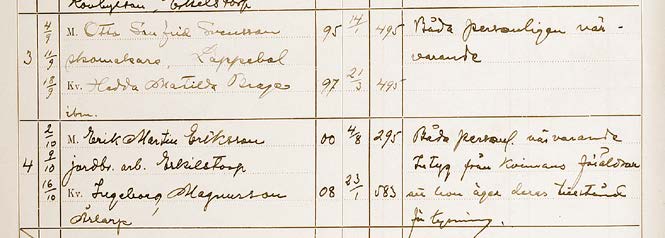 Erkelstorp
4/9 M. Otto Sen frid Svensson 95 14/1 495 Båda personligen när-
3 11/9 skomakare, Lappebol varande
18/9 Kv. Hedda Matilda Brage 97 21/3 495
ibm.
2/10 M. Erik Martin Eriksson 00 4/8 295 Båda personl. närvarande
4 9/10 jordbr. arb. Erkilstorp Intyg från kvinnans föräldrar
16/10 Kv. Ingeborg Magnusson 08 23/1 583 att hon äger deras tillstånd
för lysning.